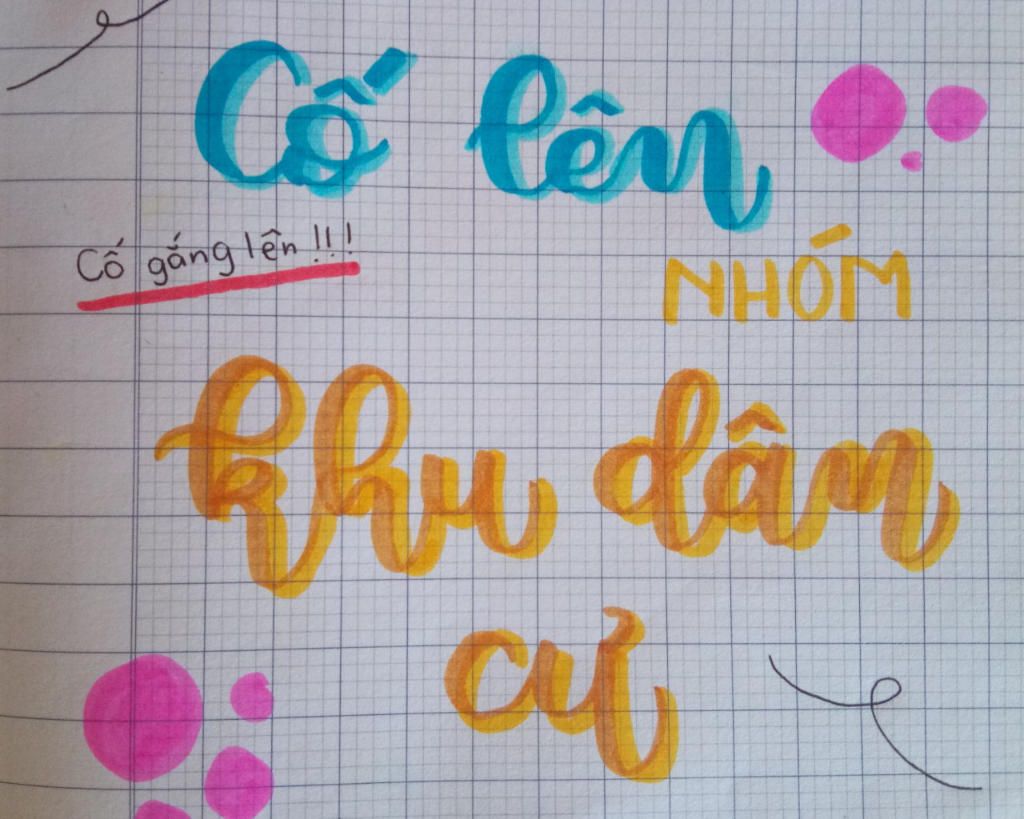 Cố lên
Cố gắng lên!!!
NHÓM
khu dân
cư